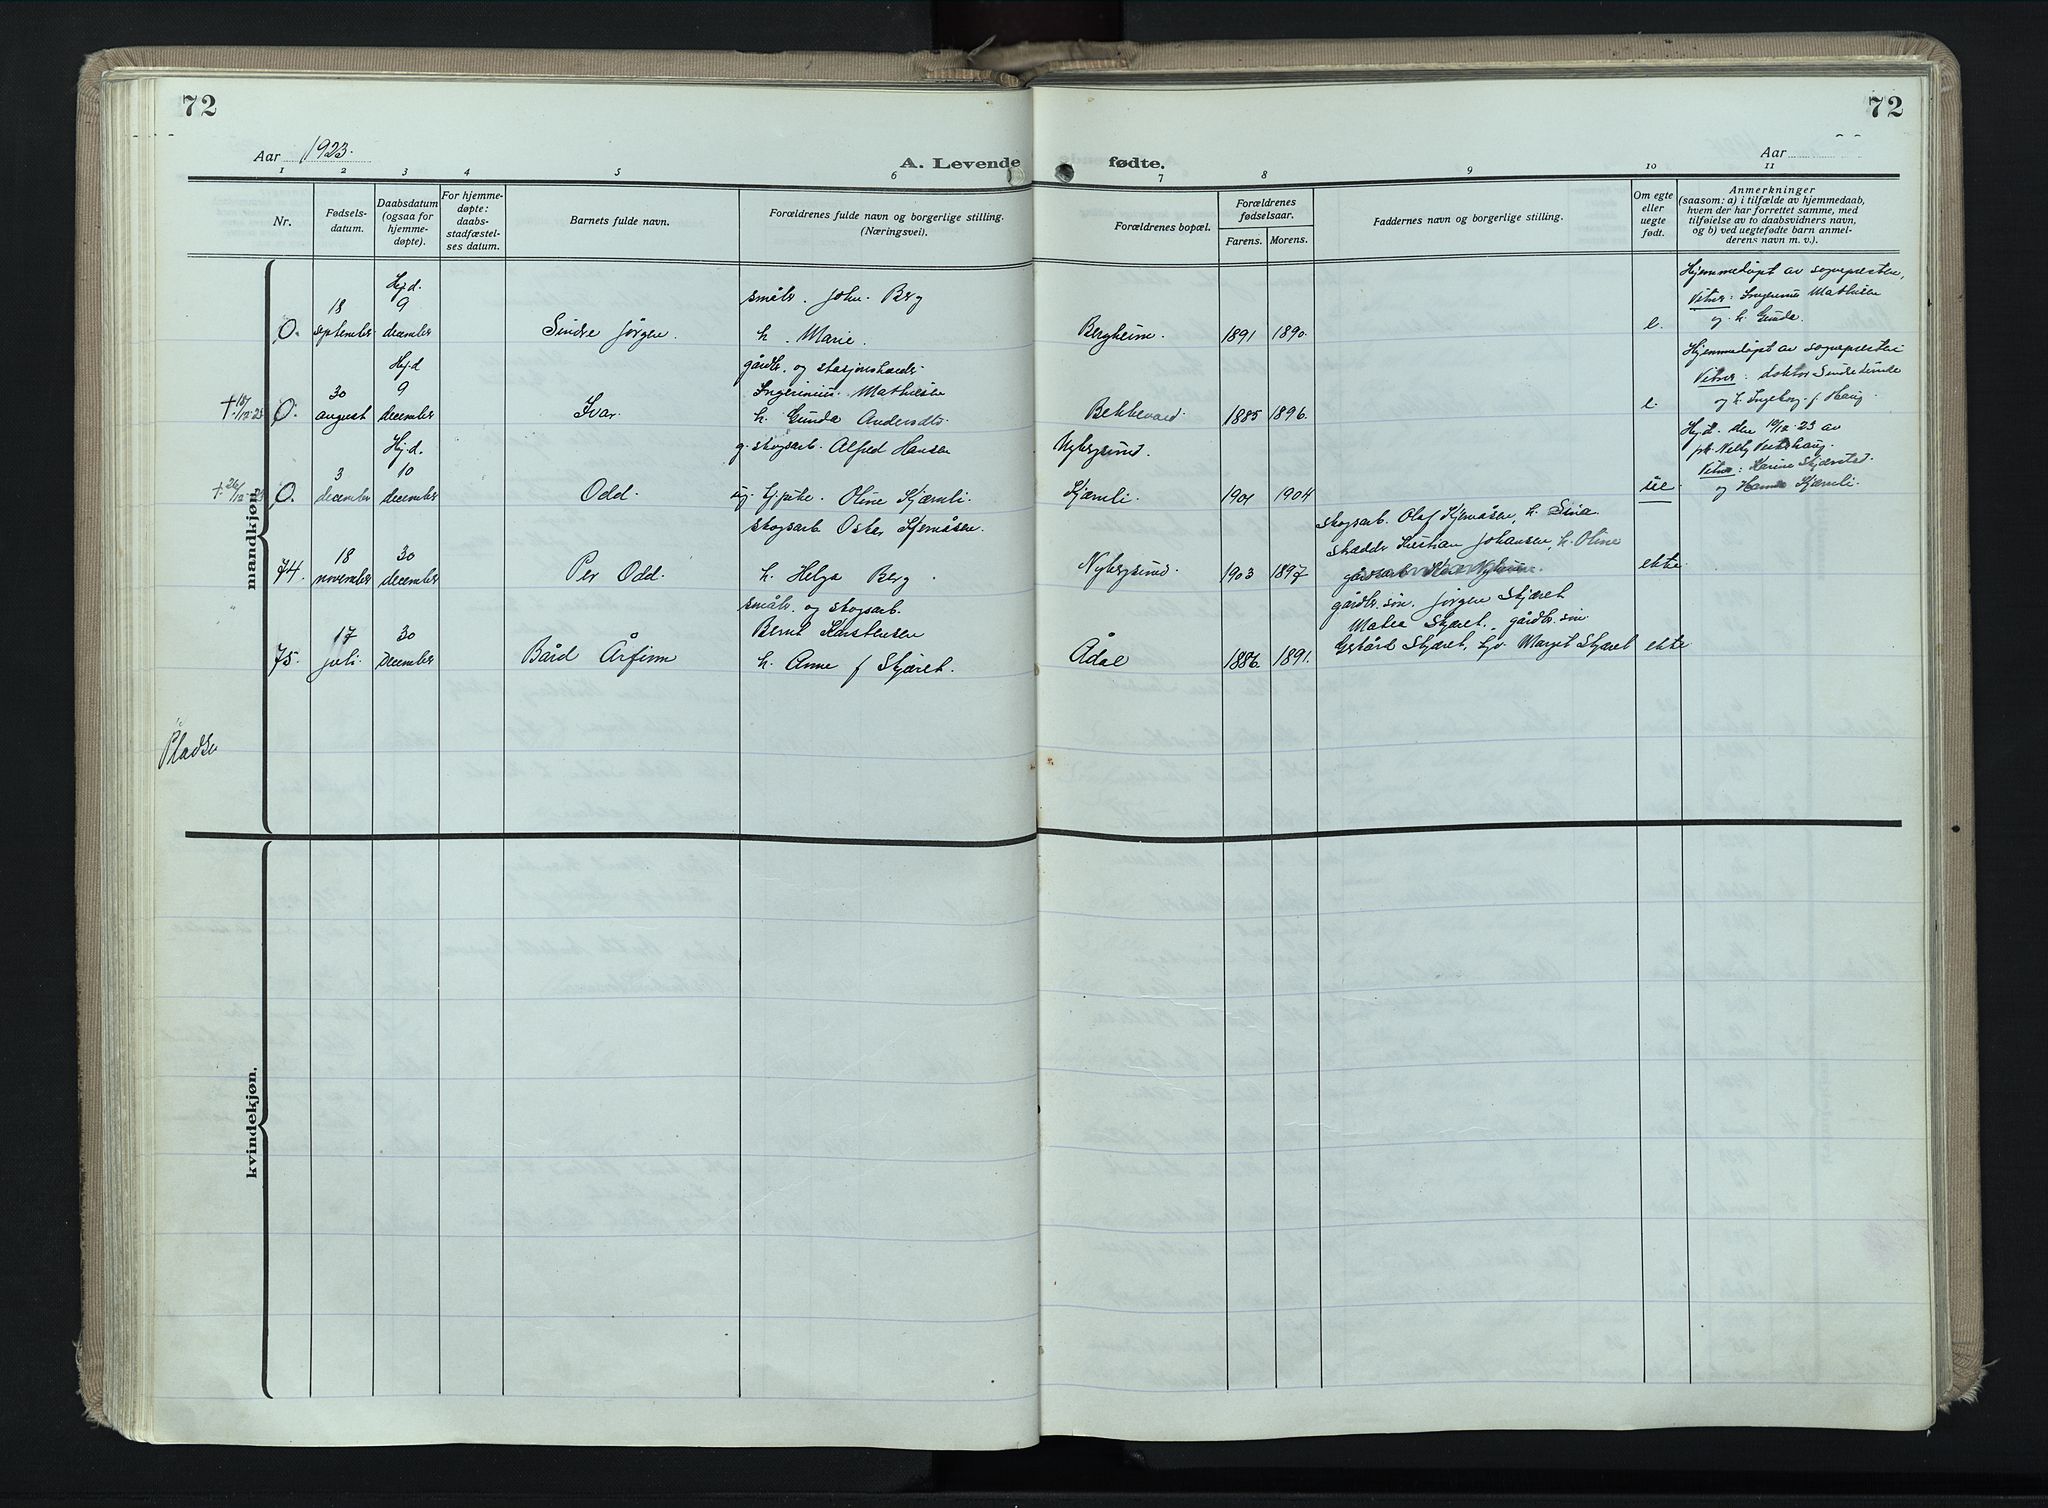 72
72
Aar 1923.
A. Levende fødte.
Aar
1 2 3 4 5 6 7 8 9 10 11
Nr.
Fødsels-
datum.
Daabsdatum
(ogsaa for
hjemme-
døpte).
For hjemme-
døpte:
daabs-
stadfæstel-
ses datum.
Barnets fulde navn.
Forældrenes fulde navn og borgerlige stilling.
(Næringsvei).
Forældrenes bopæl.
Forældrenes
fødselsaar.
Farens. Morens.
Faddernes navn og borgerlige stilling.
Om egte
eller
uegte
født.
Anmerkninger
(saasom: a) i tilfælde av hjemmedaab,
hvem der har forrettet samme, med
tilføielse av to daabsvidners navn,
og b) ved uegtefødte barn anmel-
derens navn m. v.).
mandkjøn.
Hj.d.
18 9 småbr. John. Berg
0. september december Sindre Jørgen h. Marie. Bergheim. 1891 1890. e.
Hjemmedøpt av sognepresten,
Vitner: Ingerinius Mathisen
og h. Gunda.
Hj.d
gårdbr. og stasjonsholder
30 9 Ingerinius Mathisen
0. august december Ivar. h. Gunda Andersdtr. Bekkevold. 1885 1896. e.
Hjemmedøpt av sognepresten
Vitner: doktor Sindre
og h. Ingeborg f. Haug.
Hj.d.
g. skogsarb. Alfred Hansen Nybergsund.
3 10
0. december december Odd. ug. Oline Kjærnli Kjærnli. 1901 1904 ue
Hj.d. den 10/12-23 av
Nelly
Vitner: Karine
og Kjærnli.
skogsarb. Oskar Kjernåsen.
18 30
74. november december Per Odd. h. Helga Berg. Nybergsund. 1903 1897 ekte
skogsarb. Olaf Kjernåsen, h. Sina
skrædder Kristian Johansen, h. Oline
småbr. og skogsarb.
17 30 Bernt Karstensen
75. juli. December Bård Arfinn h. Anne f Skjæret. Ådal 1886. 1891. ekte
gårdbr. søn. Jørgen Skjæret
Matea Skjæret, gårdbr. søn.
Gerhard Skjæret, Margit Skjæret
kvindekjøn.